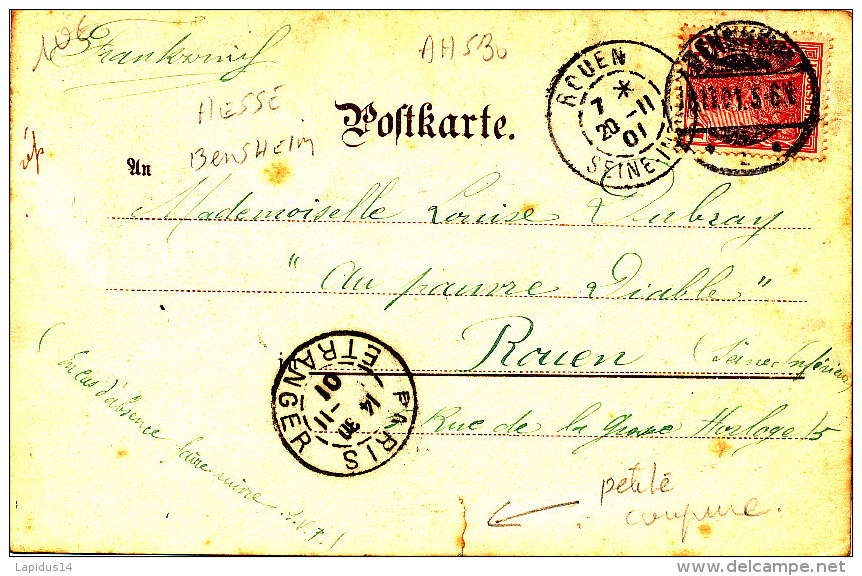 10€
Frankreich
AH 530
HESSE
BENSHEIM
Postkarte.
ROUEN
7 * 11
20 01
SEINE INF
11 01. 5-6
An
Mademoiselle Louise Dubray
"Au pauvre Diable"
Rouen (Seine Inférieure)
Rue de la Grosse Horloge 15
PARIS
ETRANGER
14
30
11
01
(En cas d'absence faire suivre S.V.P.)
petite
coupure.
Lapidus14
www.delcampe.net